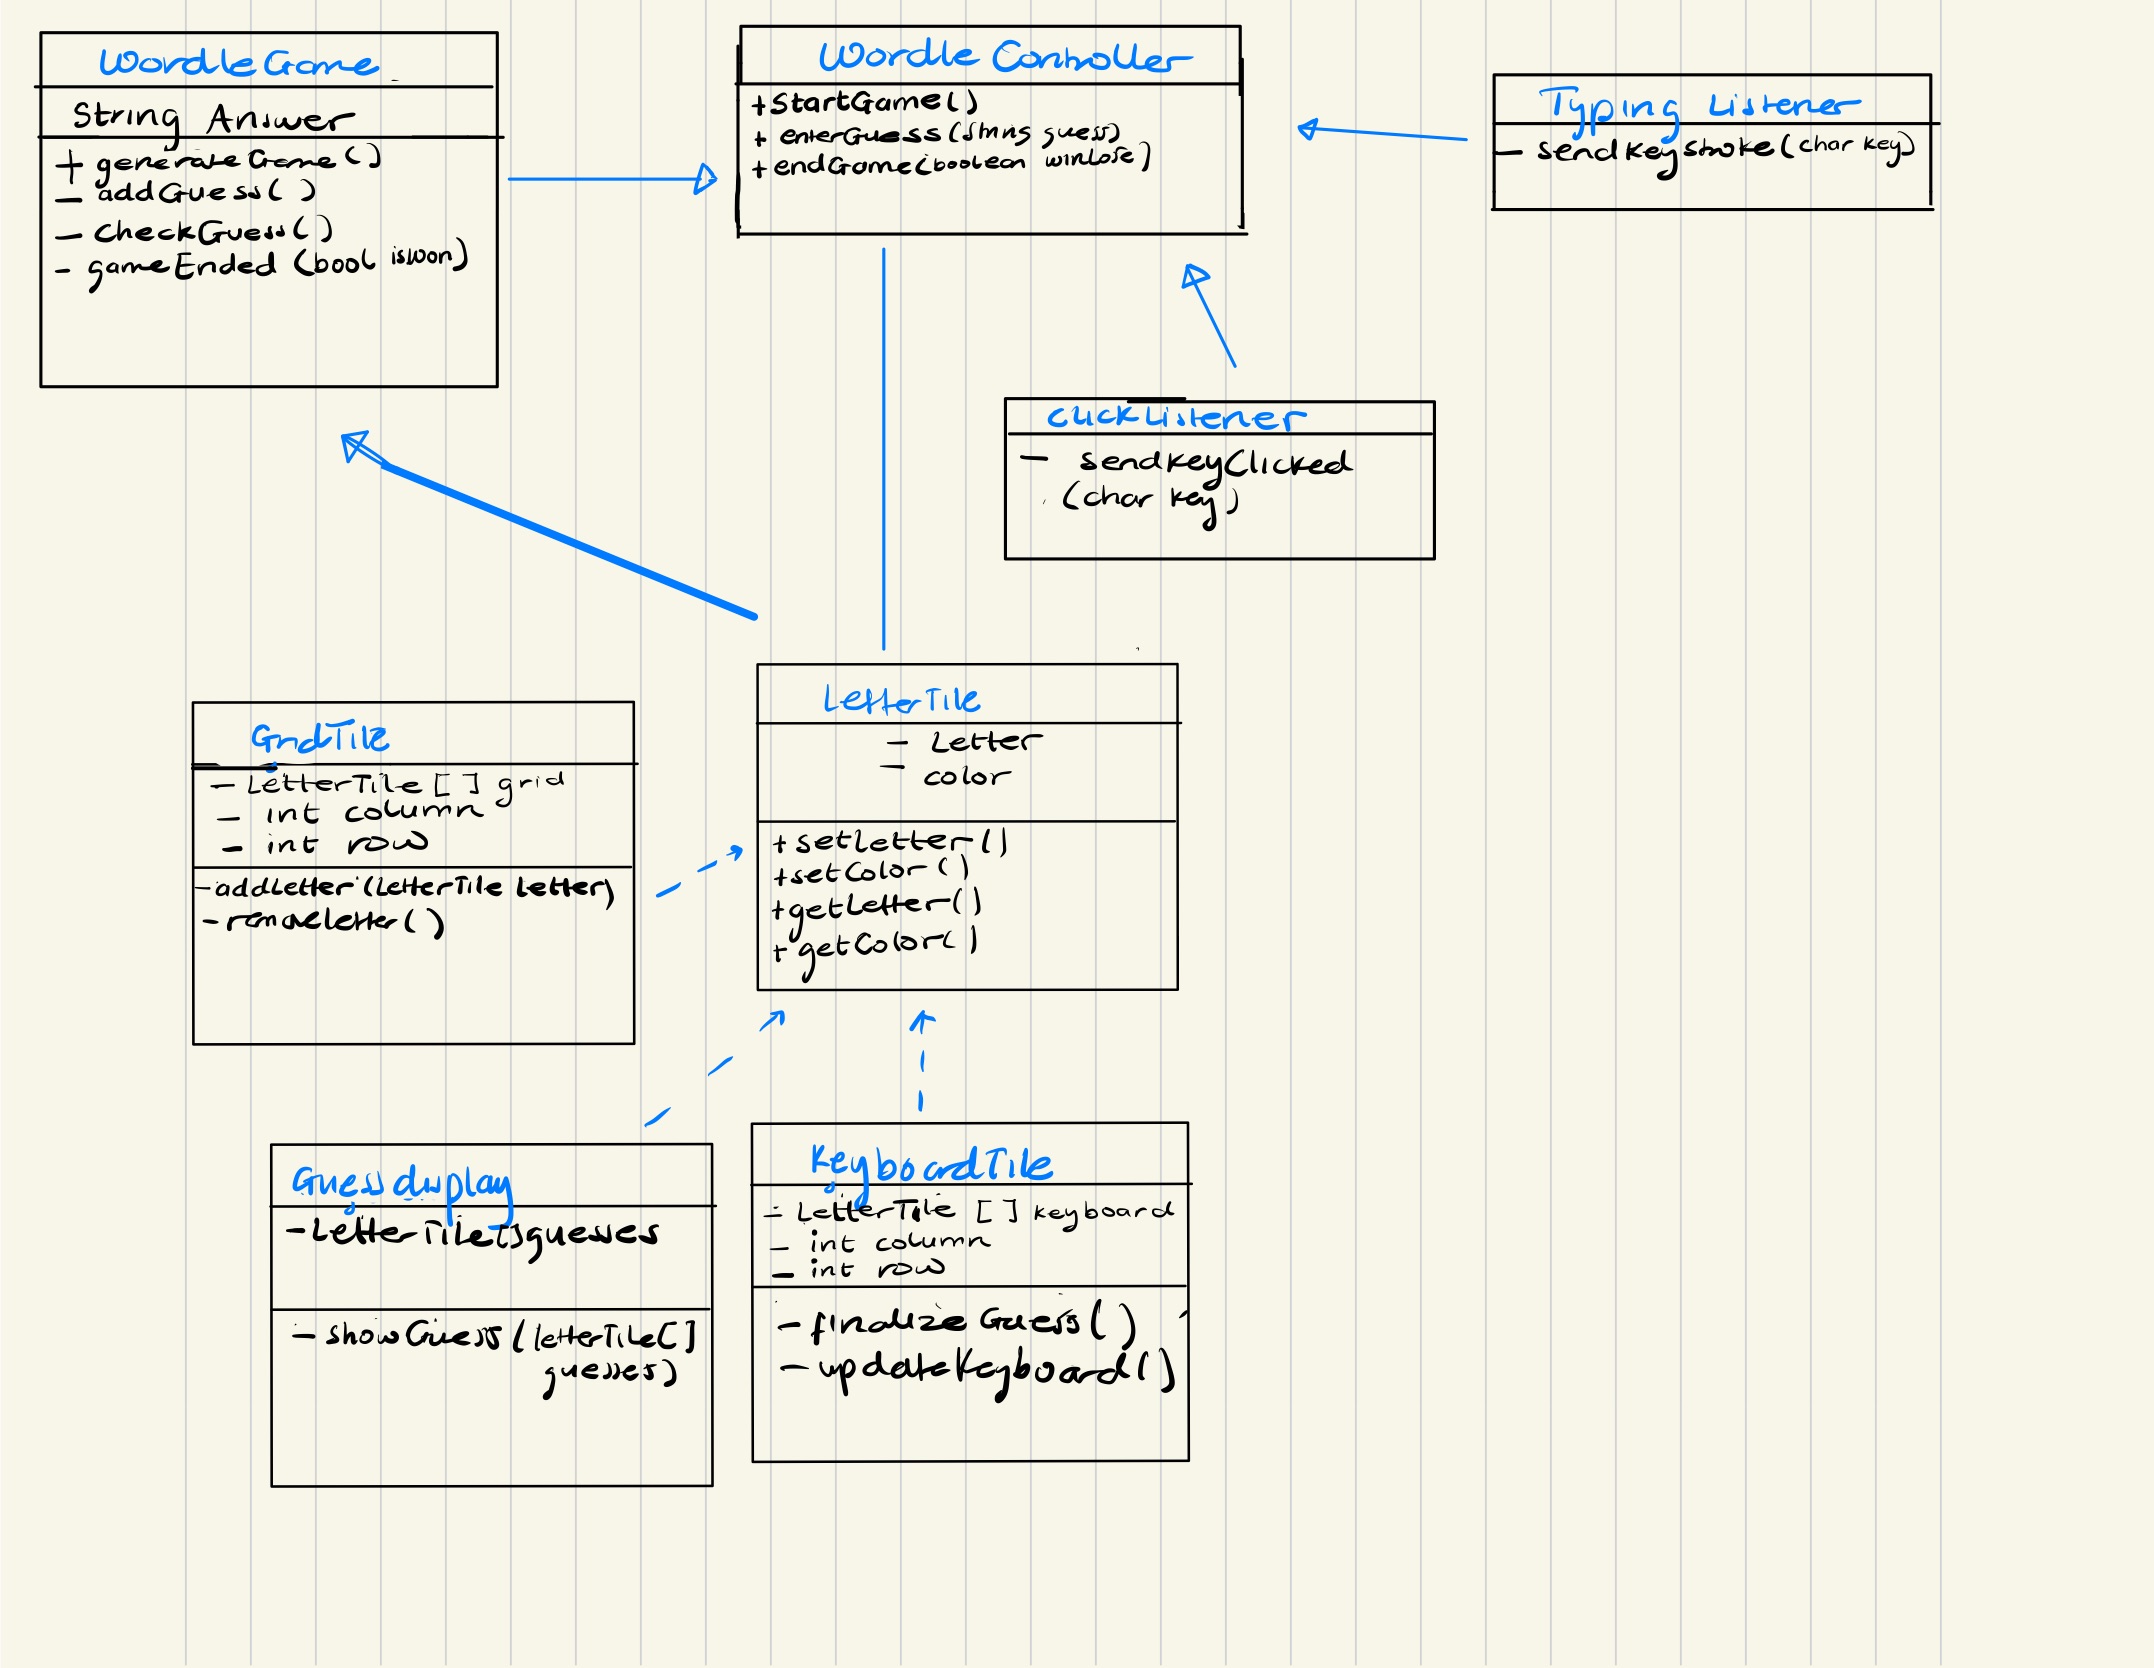 WordleGame
String Answer
+ generateGame()
- addGuess( )
- checkGuess()
- gameEnded (bool isWon)
Wordle Controller
+StartGame()
+ enterGuess(String guess)
+ endGame(boolean winLose)
Typing Listener
- sendKeystroke(char key)
clickListener
- sendKeyClicked
(char key)
LetterTile
- Letter
- color
+ setLetter()
+setColor ()
+getLetter()
+ getColor()
GridTile
- LetterTile [ ] grid
- int column
- int row
-addLetter (LetterTile Letter)
- removeletter()
Guessdisplay
-LetterTile[]guesses
- showGuess(letterTile[]
guesses)
KeyboardTile
- LetterTile [ ] keyboard
- int column
- int row
-finalizeGuess()
-updateKeyboard()